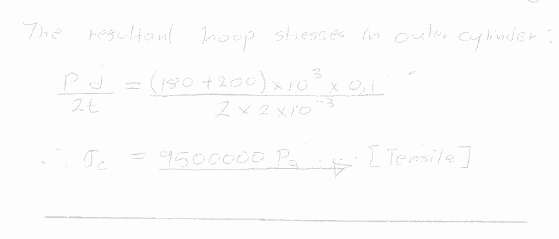 The resultant hoop stresses in outer cylinder :
P d / 2t = (180 + 200) × 10³ × 0,1 / 2 × 2 × 10⁻³
∴ σc = 9500000 Pa ... [Tensile]